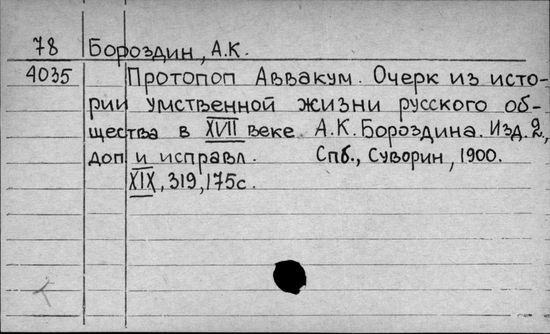 78 Бороздин, А.К.
4035 Протопоп Аввакум. Очерк из исто-
рии умственной жизни русского об-
щества в XVII веке. А.К. Бороздина. Изд. 2,
доп и исправл. Спб., Суворин, 1900.
XIX, 319, 175с.